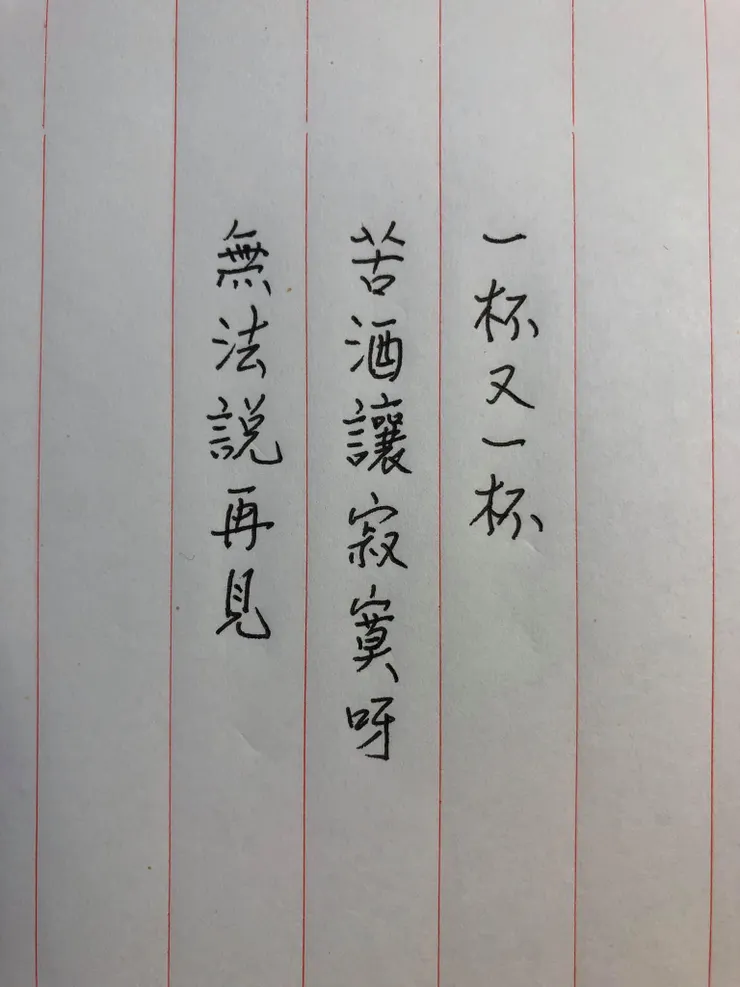 一杯又一杯
苦酒讓寂寞呀
無法說再見